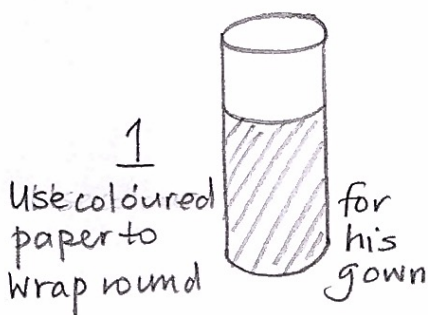 1
Use coloured
paper to
wrap round
for
his
gown